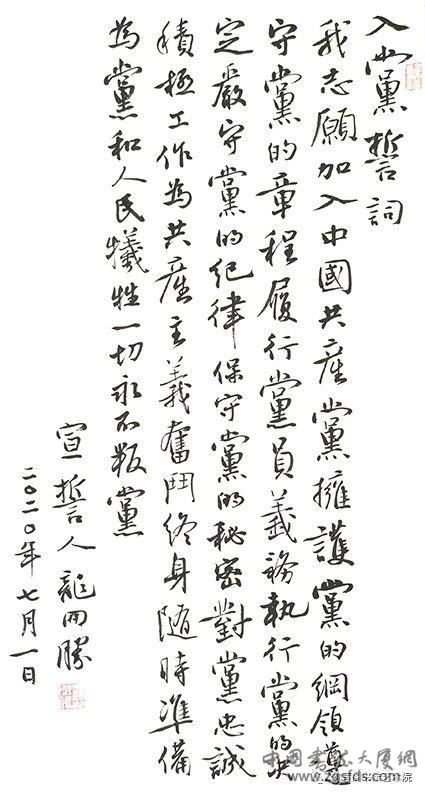 入黨誓詞
我志願加入中國共産黨擁護黨的綱領遵
守黨的章程履行黨員義務執行黨的决
定嚴守黨的紀律保守黨的秘密對黨忠誠
積極工作為共産主義奮鬥終身隨時準備
為黨和人民犧牲一切永不叛黨
宣誓人龍四勝
二〇二〇年七月一日
中国书法大厦网
www.zgsfds.com